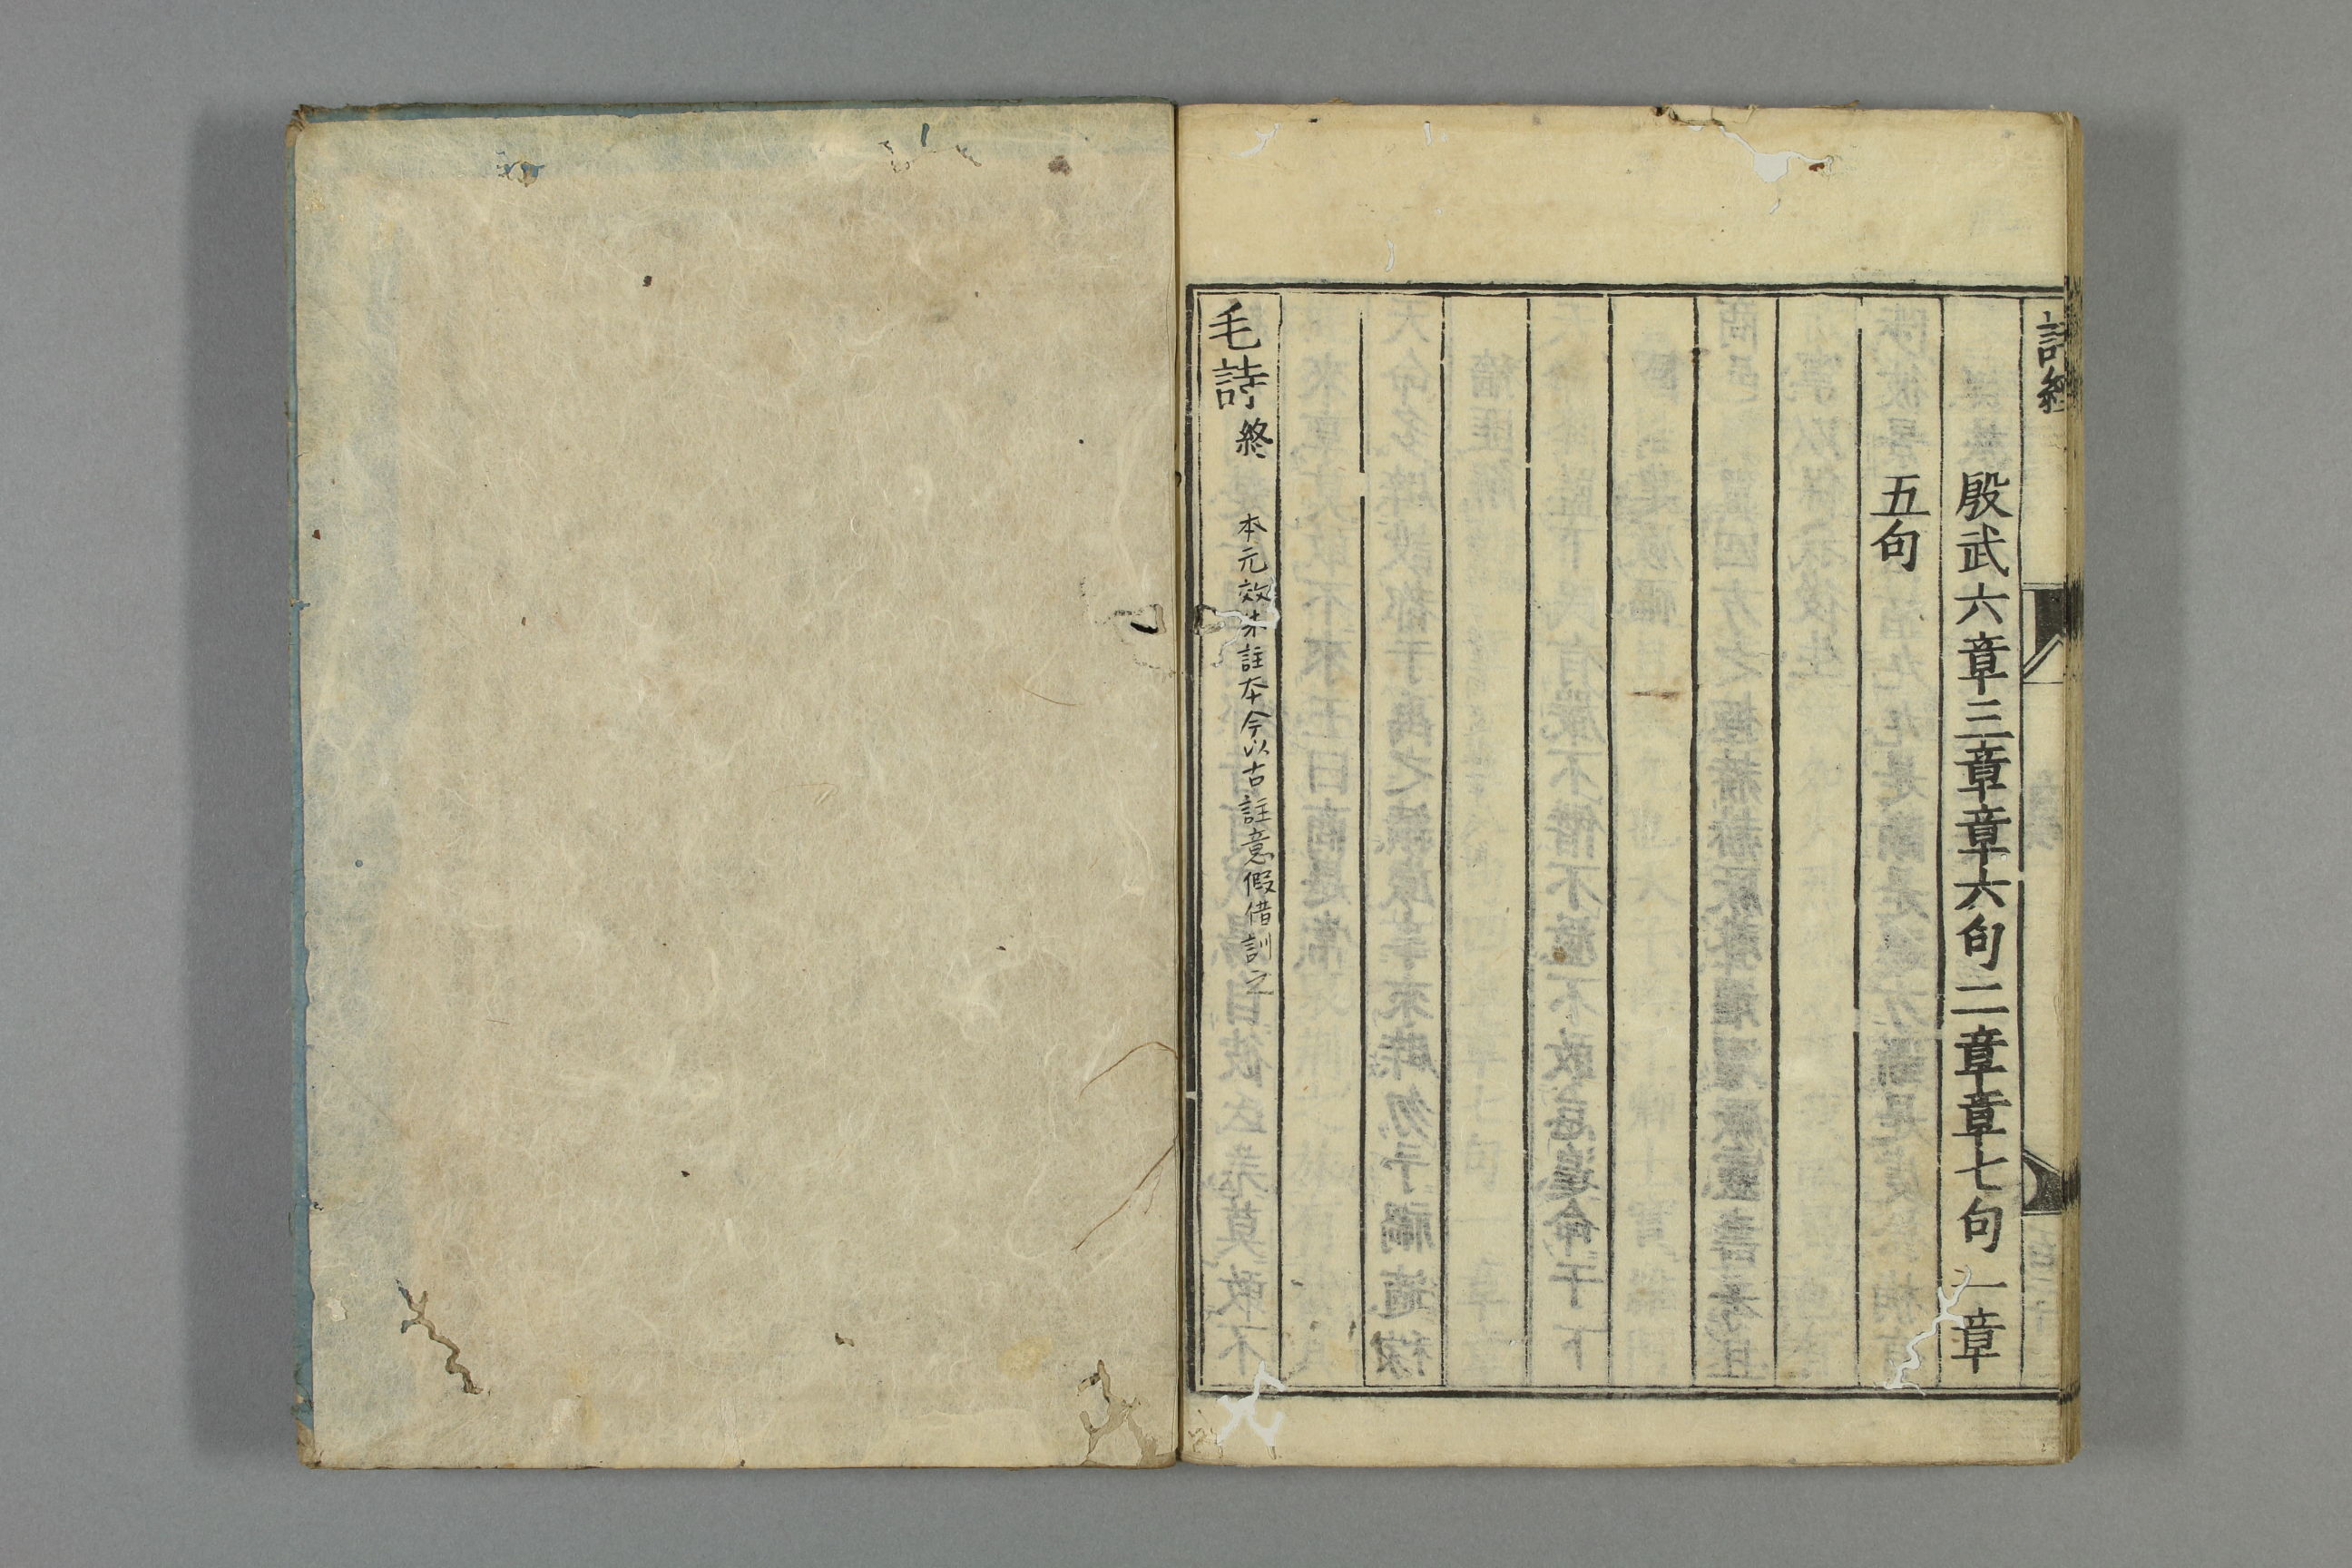 詩經
殷武六章三章章六句二章章七句一章
五句
毛詩終
本元效朱註本今以古註意假借訓之